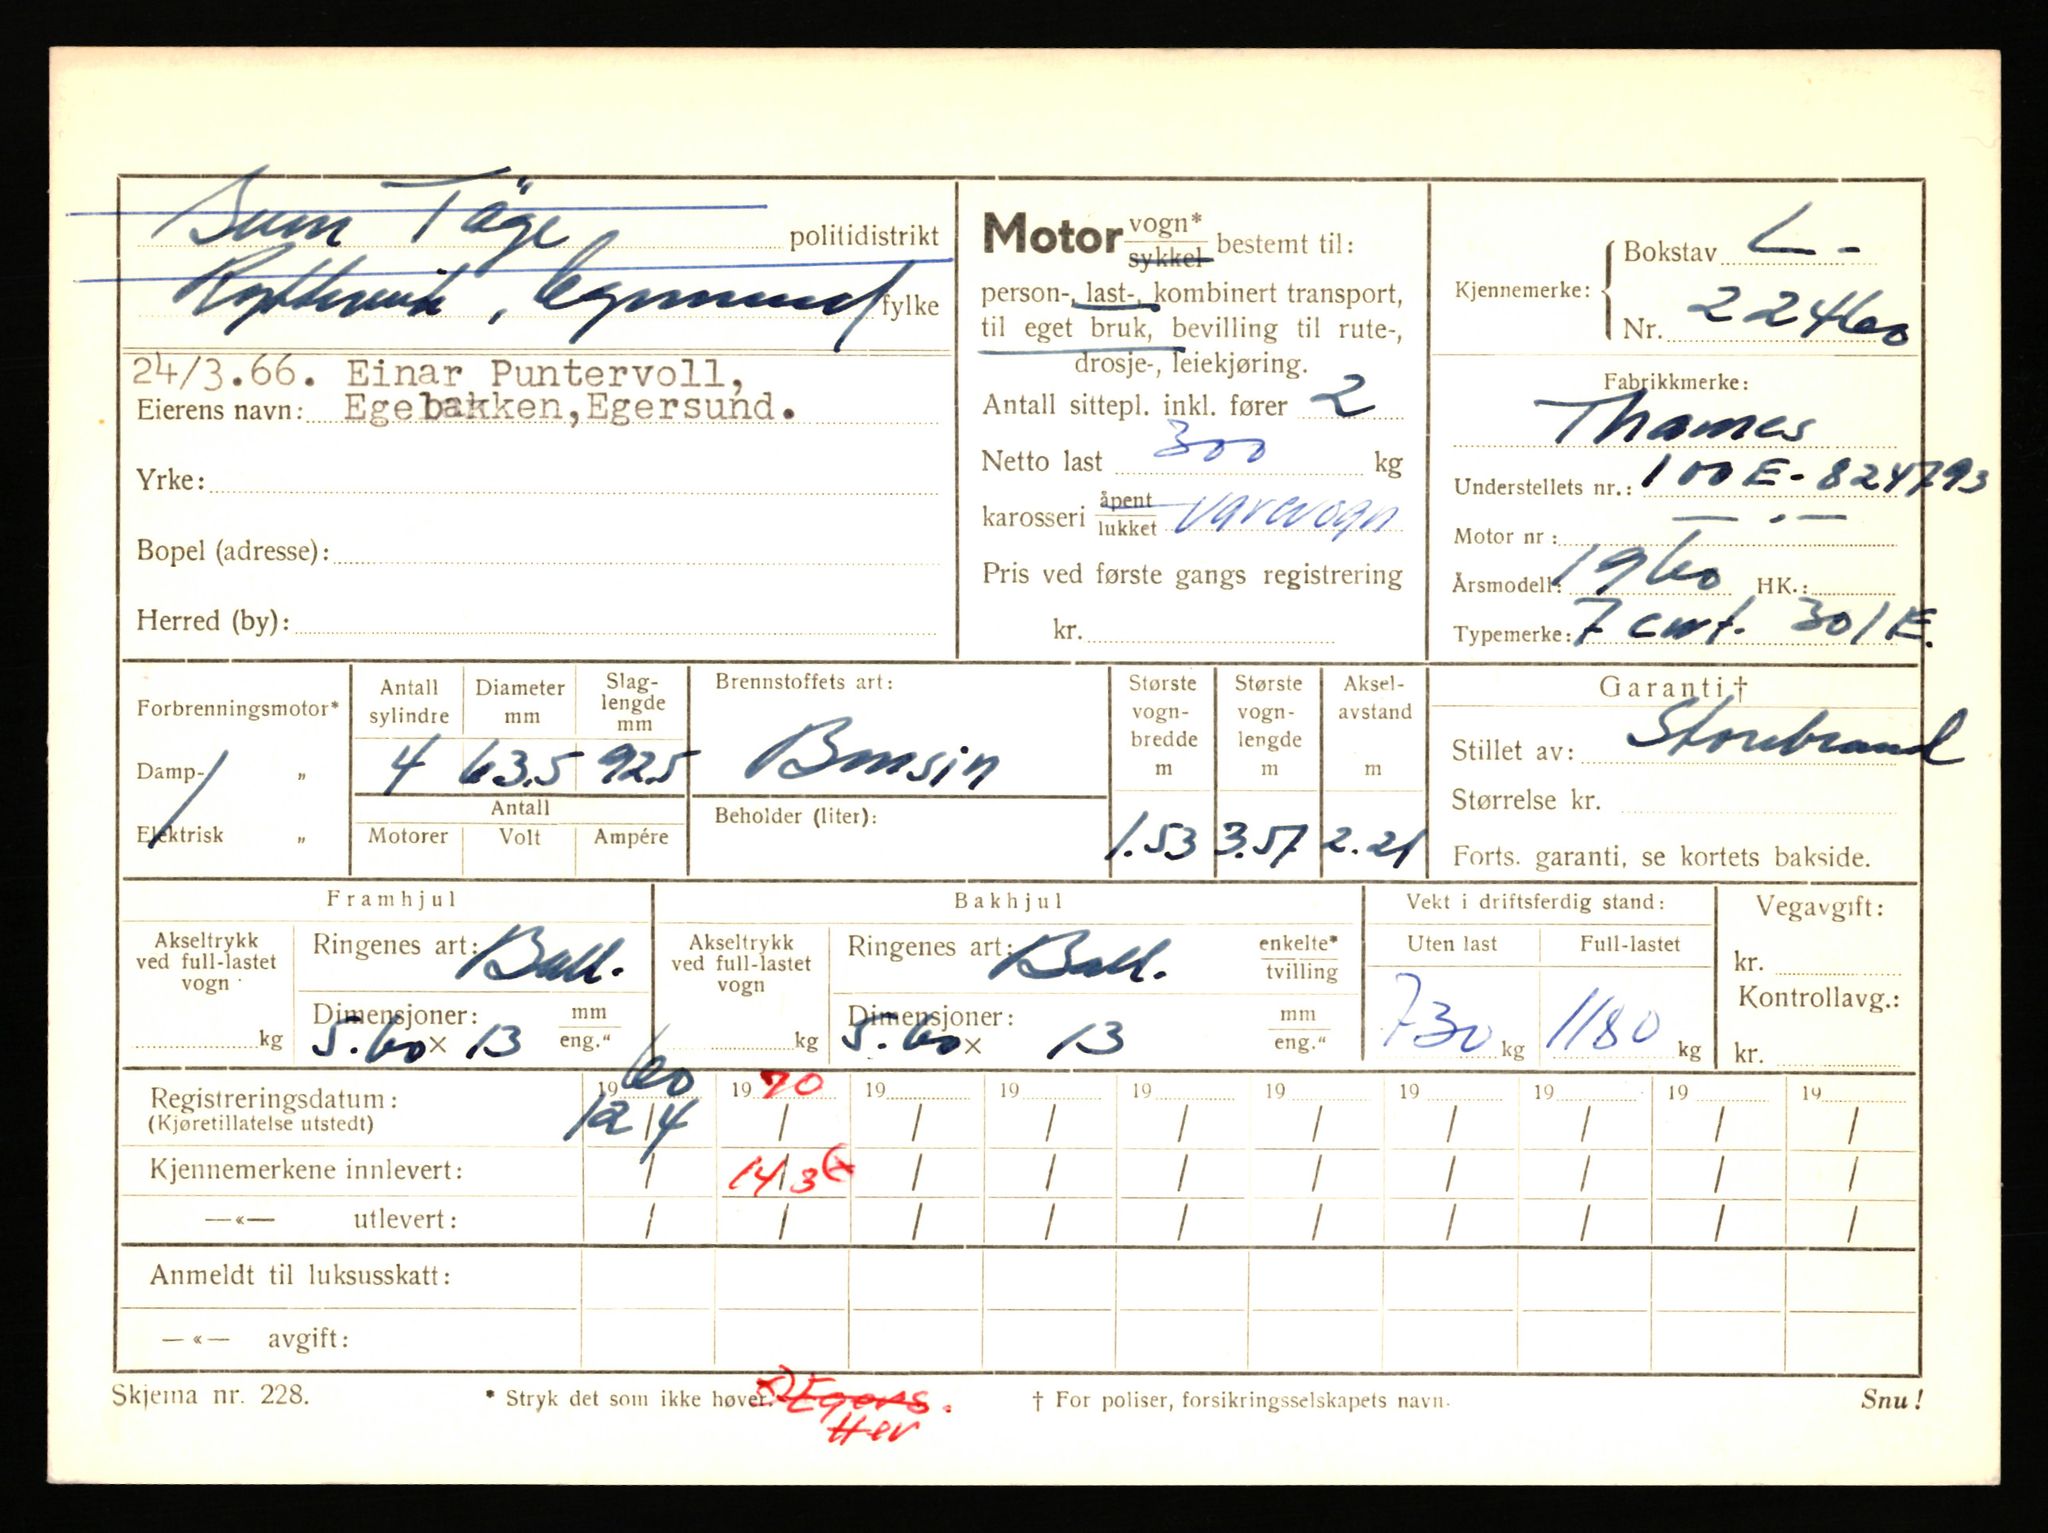 Tåge
politidistrikt
fylke
24/3.66. Einar Puntervoll,
Eierens navn: Egebakken, Egersund.
Yrke:
Bopel (adresse):
Herred (by):
Motor vogn* sykkel bestemt til:
person-, last-, kombinert transport,
til eget bruk, bevilling til rute-,
drosje-, leiekjøring.
Antall sittepl. inkl. fører 2
Netto last 300 kg
karosseri åpent lukket varevogn
Pris ved første gangs registrering
kr.
Kjennemerke:
Bokstav L-
Nr. 22460
Fabrikkmerke:
Thames
Understellets nr.: 100E-824793
Motor nr: — " —
Årsmodell: 1960 HK.:
Typemerke: 7 cwt. 301E.
Forbrenningsmotor*
Damp- „
Elektrisk „
Antall sylindre
Diameter mm
Slag-lengde mm
4 63.5 92.5
Antall
Motorer Volt Ampére
Brennstoffets art:
Bensin
Beholder (liter):
Største vogn-bredde m
1.53
Største vogn-lengde m
3.57
Aksel-avstand m
2.21
Garanti †
Stillet av: Storebrand
Størrelse kr.
Forts. garanti, se kortets bakside.
Framhjul
Akseltrykk ved full-lastet vogn
kg
Ringenes art: Ball.
Dimensjoner: mm eng."
5.60 x 13
Bakhjul
Akseltrykk ved full-lastet vogn
kg
Ringenes art: Ball. enkelte* tvilling
Dimensjoner: mm eng."
5.60 x 13
Vekt i driftsferdig stand:
Uten last Full-lastet
730 kg 1180 kg
Vegavgift:
kr.
Kontrollavg.:
kr.
Registreringsdatum: 1960 1970 19 19 19 19 19 19 19 19
(Kjøretillatelse utstedt) 12/4 / / / / / / / / /
Kjennemerkene innlevert: / 14/3 x) / / / / / / / /
—«— utlevert: / / / / / / / / / /
Anmeldt til luksusskatt:
—«— avgift:
Skjema nr. 228.
* Stryk det som ikke høver.
x) Egers.
Her
† For poliser, forsikringsselskapets navn.
Snu!